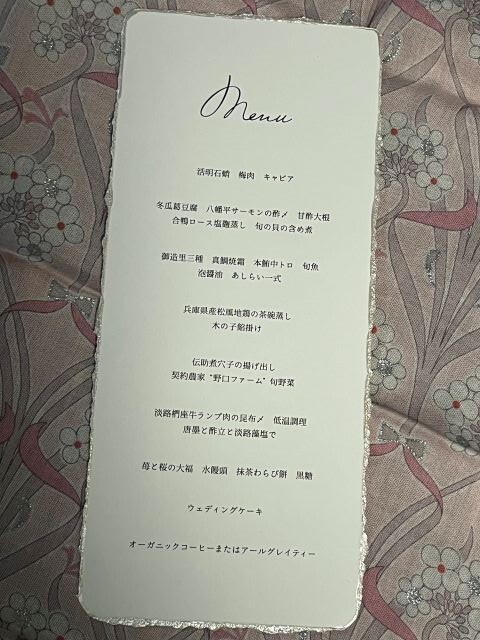 Menu
活明石蛸　梅肉　キャビア
冬瓜葛豆腐　八幡平サーモンの酢〆　甘酢大根
合鴨ロース塩麹蒸し　旬の貝の含め煮
御造里三種　真鯛焼霜　本鮪中トロ　旬魚
泡醤油　あしらい一式
兵庫県産松風地鶏の茶碗蒸し
木の子餡掛け
伝助煮穴子の揚げ出し
契約農家"野口ファーム"旬野菜
淡路椚座牛ランプ肉の昆布〆　低温調理
唐墨と酢立と淡路藻塩で
苺と桜の大福　水饅頭　抹茶わらび餅　黒糖
ウェディングケーキ
オーガニックコーヒーまたはアールグレイティー